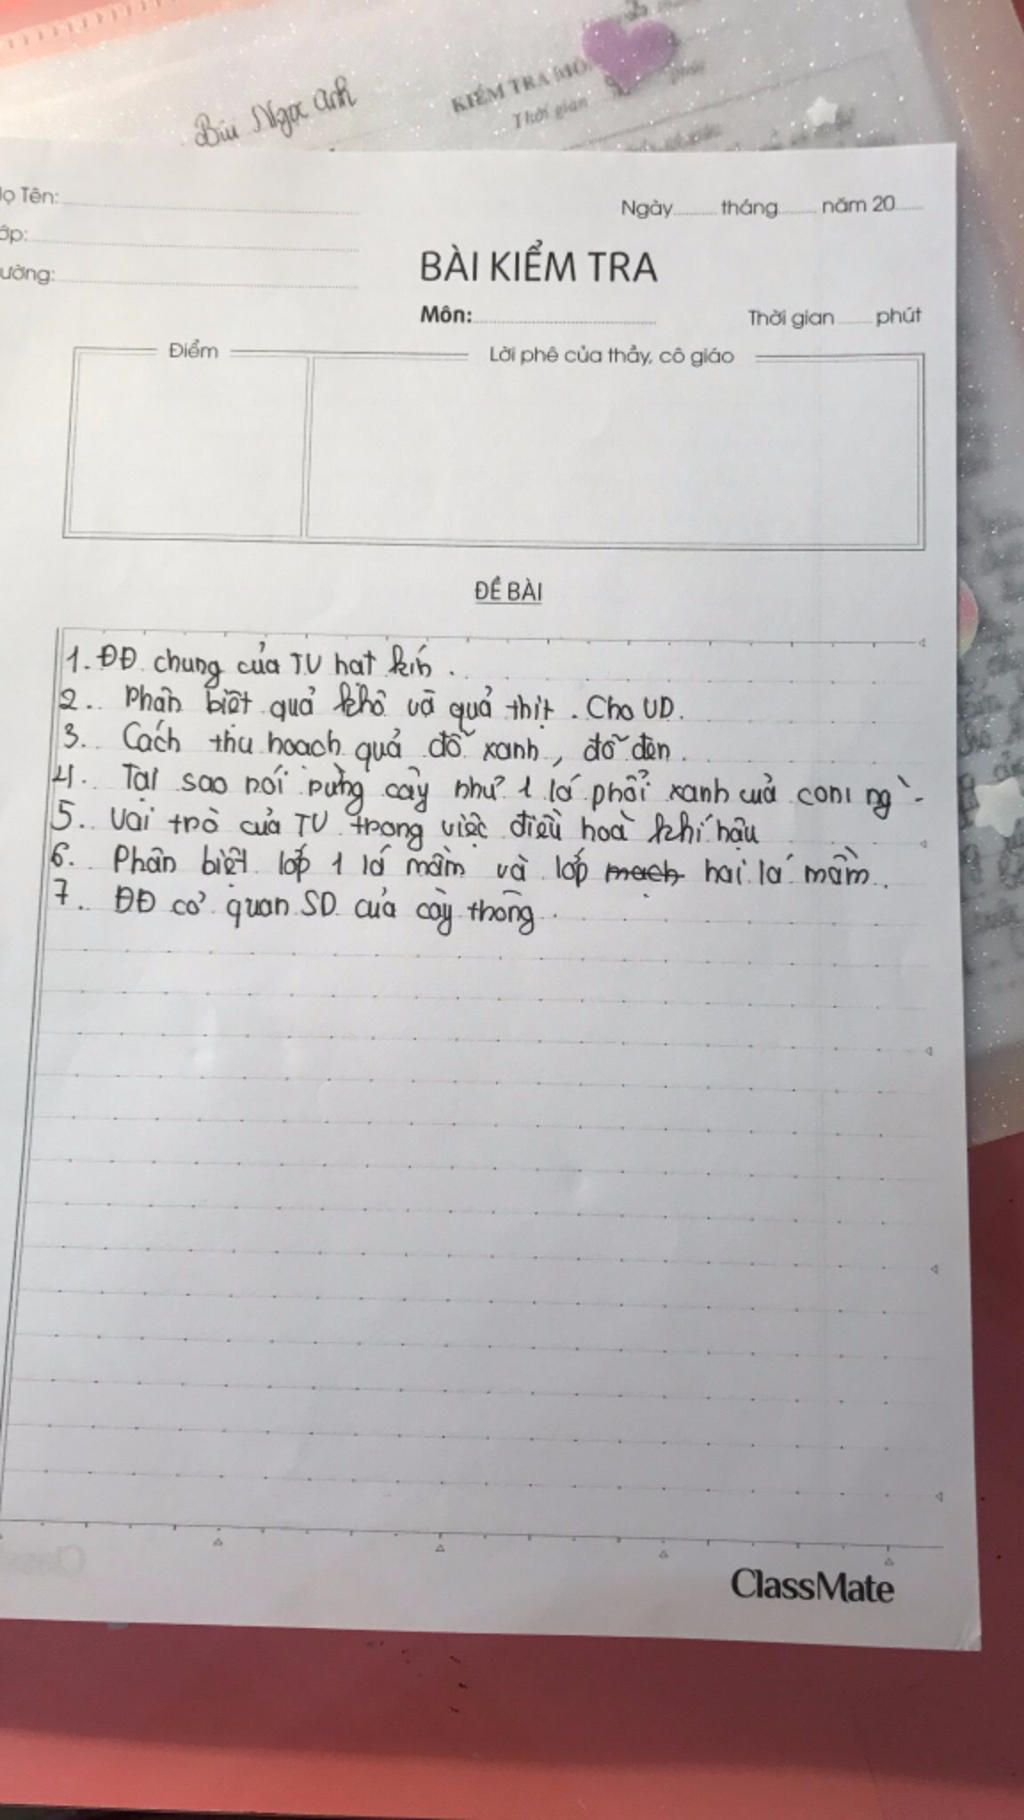 Bùi Ngọc Anh
KIỂM TRA MÔ
Thời gian phút
Họ Tên:
Ngày tháng năm 20
ớp:
ường:
BÀI KIỂM TRA
Môn:
Thời gian phút
Điểm
Lời phê của thầy, cô giáo
ĐỀ BÀI
1. ĐĐ chung của TV hạt kín.
2. Phân biệt quả khô và quả thịt. Cho VD.
3. Cách thu hoạch quả đỗ xanh, đỗ đen.
4. Tại sao nói rừng cây như 1 lá phổi xanh của con ng`
5. Vai trò của TV trong việc điều hoà khí hậu
6. Phân biệt lớp 1 lá mầm và lớp mạch hai lá mầm.
7. ĐĐ cơ quan SD của cây thông.
ClassMate